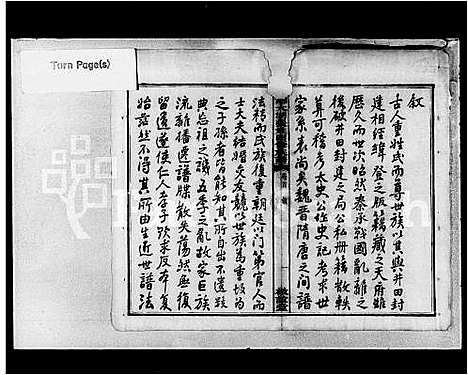 Turn Page(s)
叙
古人重姓氏而尊世族以其與井田封
建相經緯登之版籍藏之天府雖
歷久而世次昭然秦承戰國亂離之
後破井田封建之局公私冊籍散軼
莫可稽考太史公作史記考求世
家系表尚矣魏晉隋唐之間譜
法稍而氏族復重朝廷以門第官人而
士大夫結婚交友競以世族為重故為
之子孫者皆能知其所自出不遺數
典忘祖之譏五季之亂故家巨族
流離播遷譜牒散失蕩然無復
留遺遂使仁人孝子欲求反本復
始茲然不得其所由生近世譜法